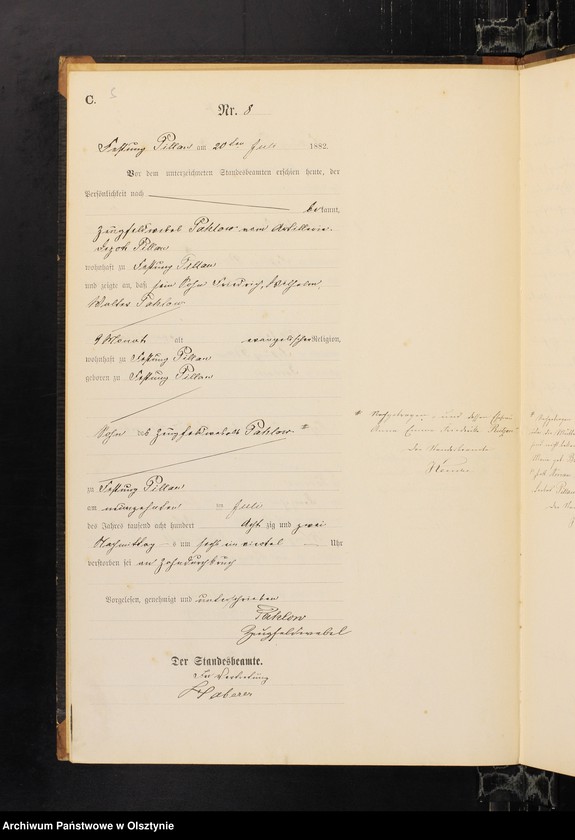 C. 5
Nr. 8
Festung Pillau am 20ten Juli 1882.
Vor dem unterzeichneten Standesbeamten erschien heute, der
Persönlichkeit nach
bekannt,
Zeugfeldwebel Pahlow vom Artillerie-
Depot Pillau
wohnhaft zu Festung Pillau
und zeigte an, daß sein Sohn Friedrich, Wilhelm,
Walter Pahlow
9 Monat alt evangelischer Religion,
wohnhaft zu Festung Pillau
geboren zu Festung Pillau
Sohn des Zeugfeldwebels Pahlow *
zu Festung Pillau
am neunzehnten Juli
des Jahres tausend acht hundert Acht zig und zwei
Nachmittag s um sechs ein viertel Uhr
verstorben sei an Zahndurchbruch
Vorgelesen, genehmigt und unterschrieben
Pahlow
Zeugfeldwebel
Der Standesbeamte.
In Vertretung
Haberer
* Nachgetragen: und dessen Ehefrau
Anna Emma
Der Standesbeamte
Archiwum Państwowe w Olsztynie